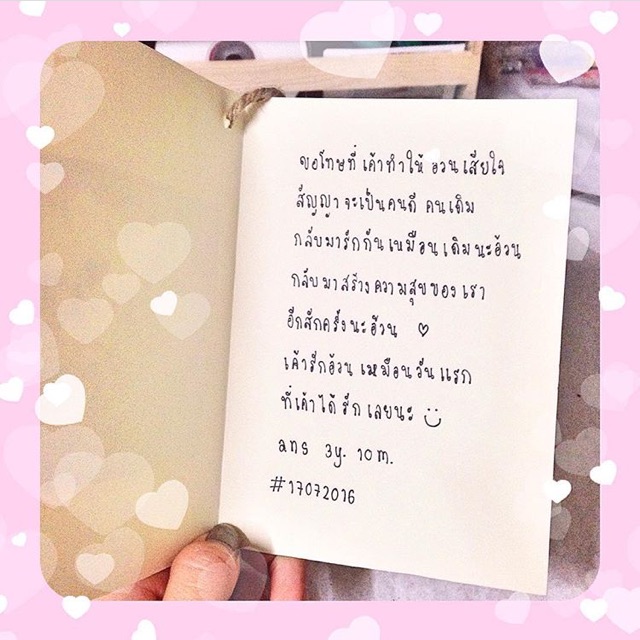 ขอโทษที่ เค้าทำให้ อวนเสียใจ
สัญญาจะเป็นคนดี คนเดิม
กลับมารักกันเหมือนเดิมนะอ้วน
กลับมาสร้างความสุขของเรา
อีกสักครั้งนะอ้วน ♡
เค้ารักอ้วน เหมือนวันแรก
ที่เค้าได้ รัก เลยนะ
ans 3y. 10m.
#17072016